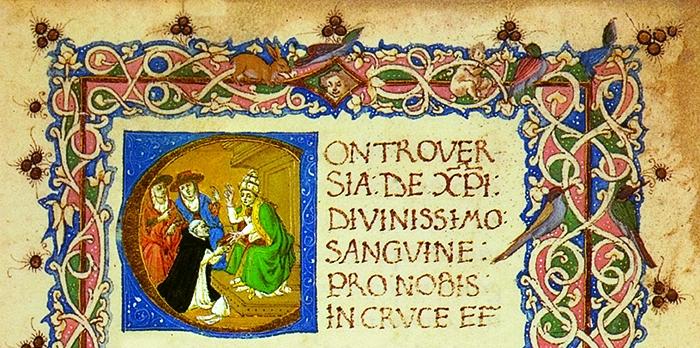 CONTROVER
SIA: DE X̅P̅I:
DIVINISSIMO:
SANGVINE:
PRO NOBIS
IN CRVCE EF